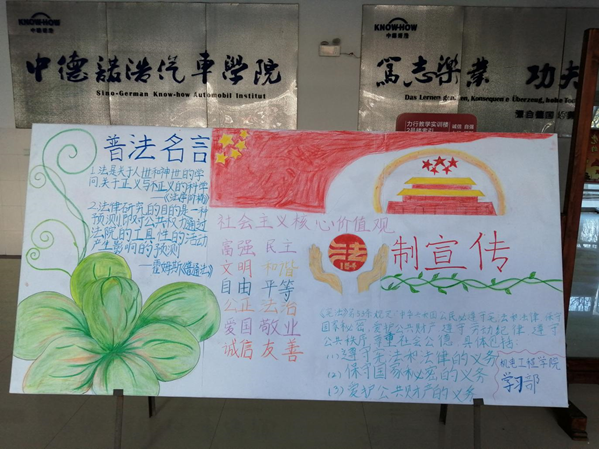 KNOW-HOW
中德诺浩
中德諾浩汽車學院
Sino-German Know-how Automobil Institut
KNOW-HOW
中德诺浩
篤志樂業 功夫
Das Lernen genießen, Konsequenz Überzeug, hohe
力行教学实训楼
普法名言
1.法是关于人世和神世的学
问,关于正义与不正义的科学
2.法律研究的目的是一种
预测,即对公共权力通过
法院的工具性的活动
产生影响的预测
——霍姆斯
社会主义核心价值观
富强 民主
文明 和谐
自由 平等
公正 法治
爱国 敬业
诚信 友善
法
制宣传
国家秘密,爱护公共财产 遵守劳动纪律 遵守
公共秩序 尊重社会公德 具体包括:
(1)遵守宪法和法律的义务
(2)保守国家秘密的义务
(3)爱护公共财产的义务
机电工程学院
学习部